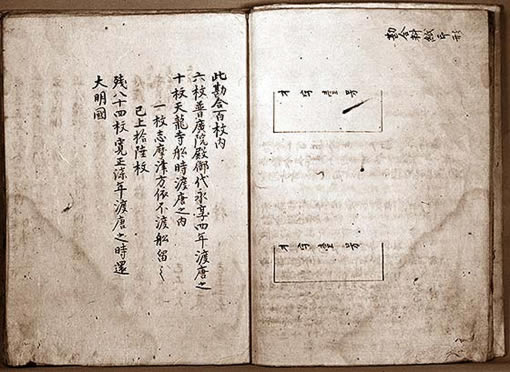 勘合料紙印形
本字壹号
本字壹号
此勘合百枚内
六枚普廣院殿御代永享四年渡唐之
十枚天龍寺船時渡唐之内
一枚志摩津方依不渡船留之
已上拾陸枚
残八十四枚寛正陸年渡唐之時還
大明國